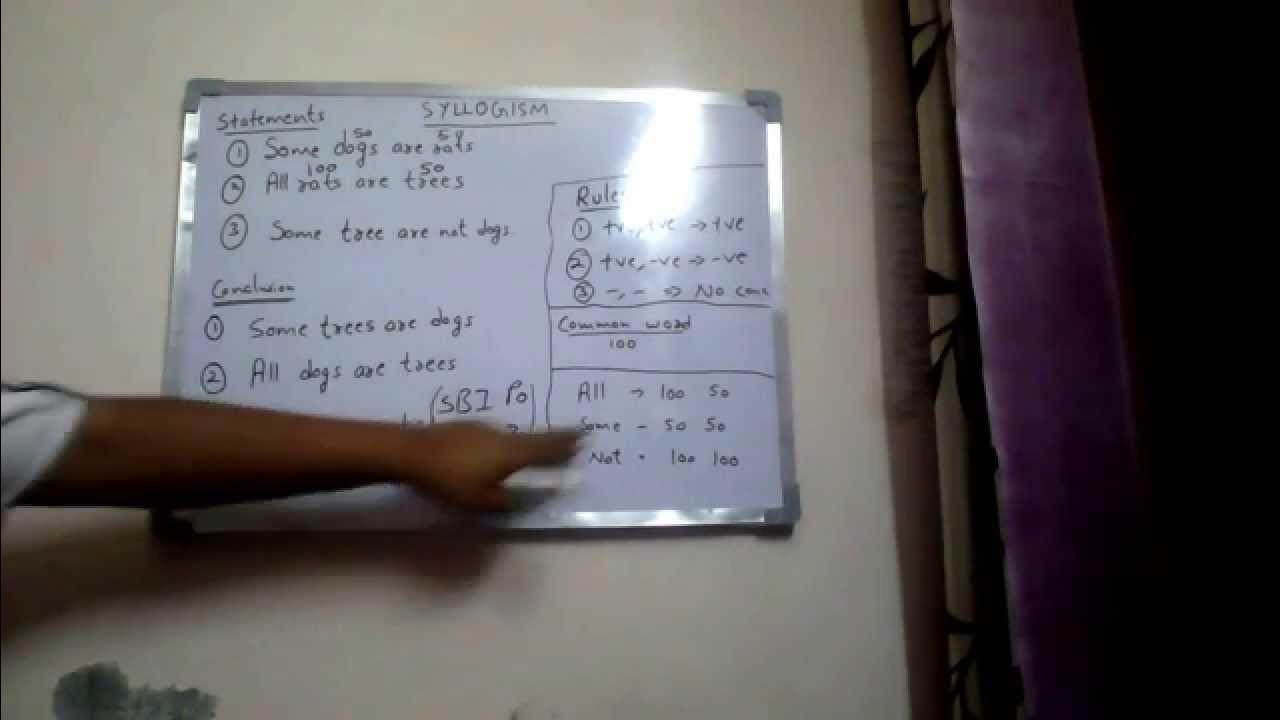 SYLLOGISM
Statements
50 50
① Some dogs are rats
100 50
② All rats are trees
③ Some tree are not dogs
Conclusion
① Some trees are dogs
② All dogs are trees
(SBI PO)
Rule
① +ve, +ve → +ve
② +ve, -ve → -ve
③ -, - ⇒ No conc
Common word
100
All → 100 50
Some - 50 50
Not - 100 100